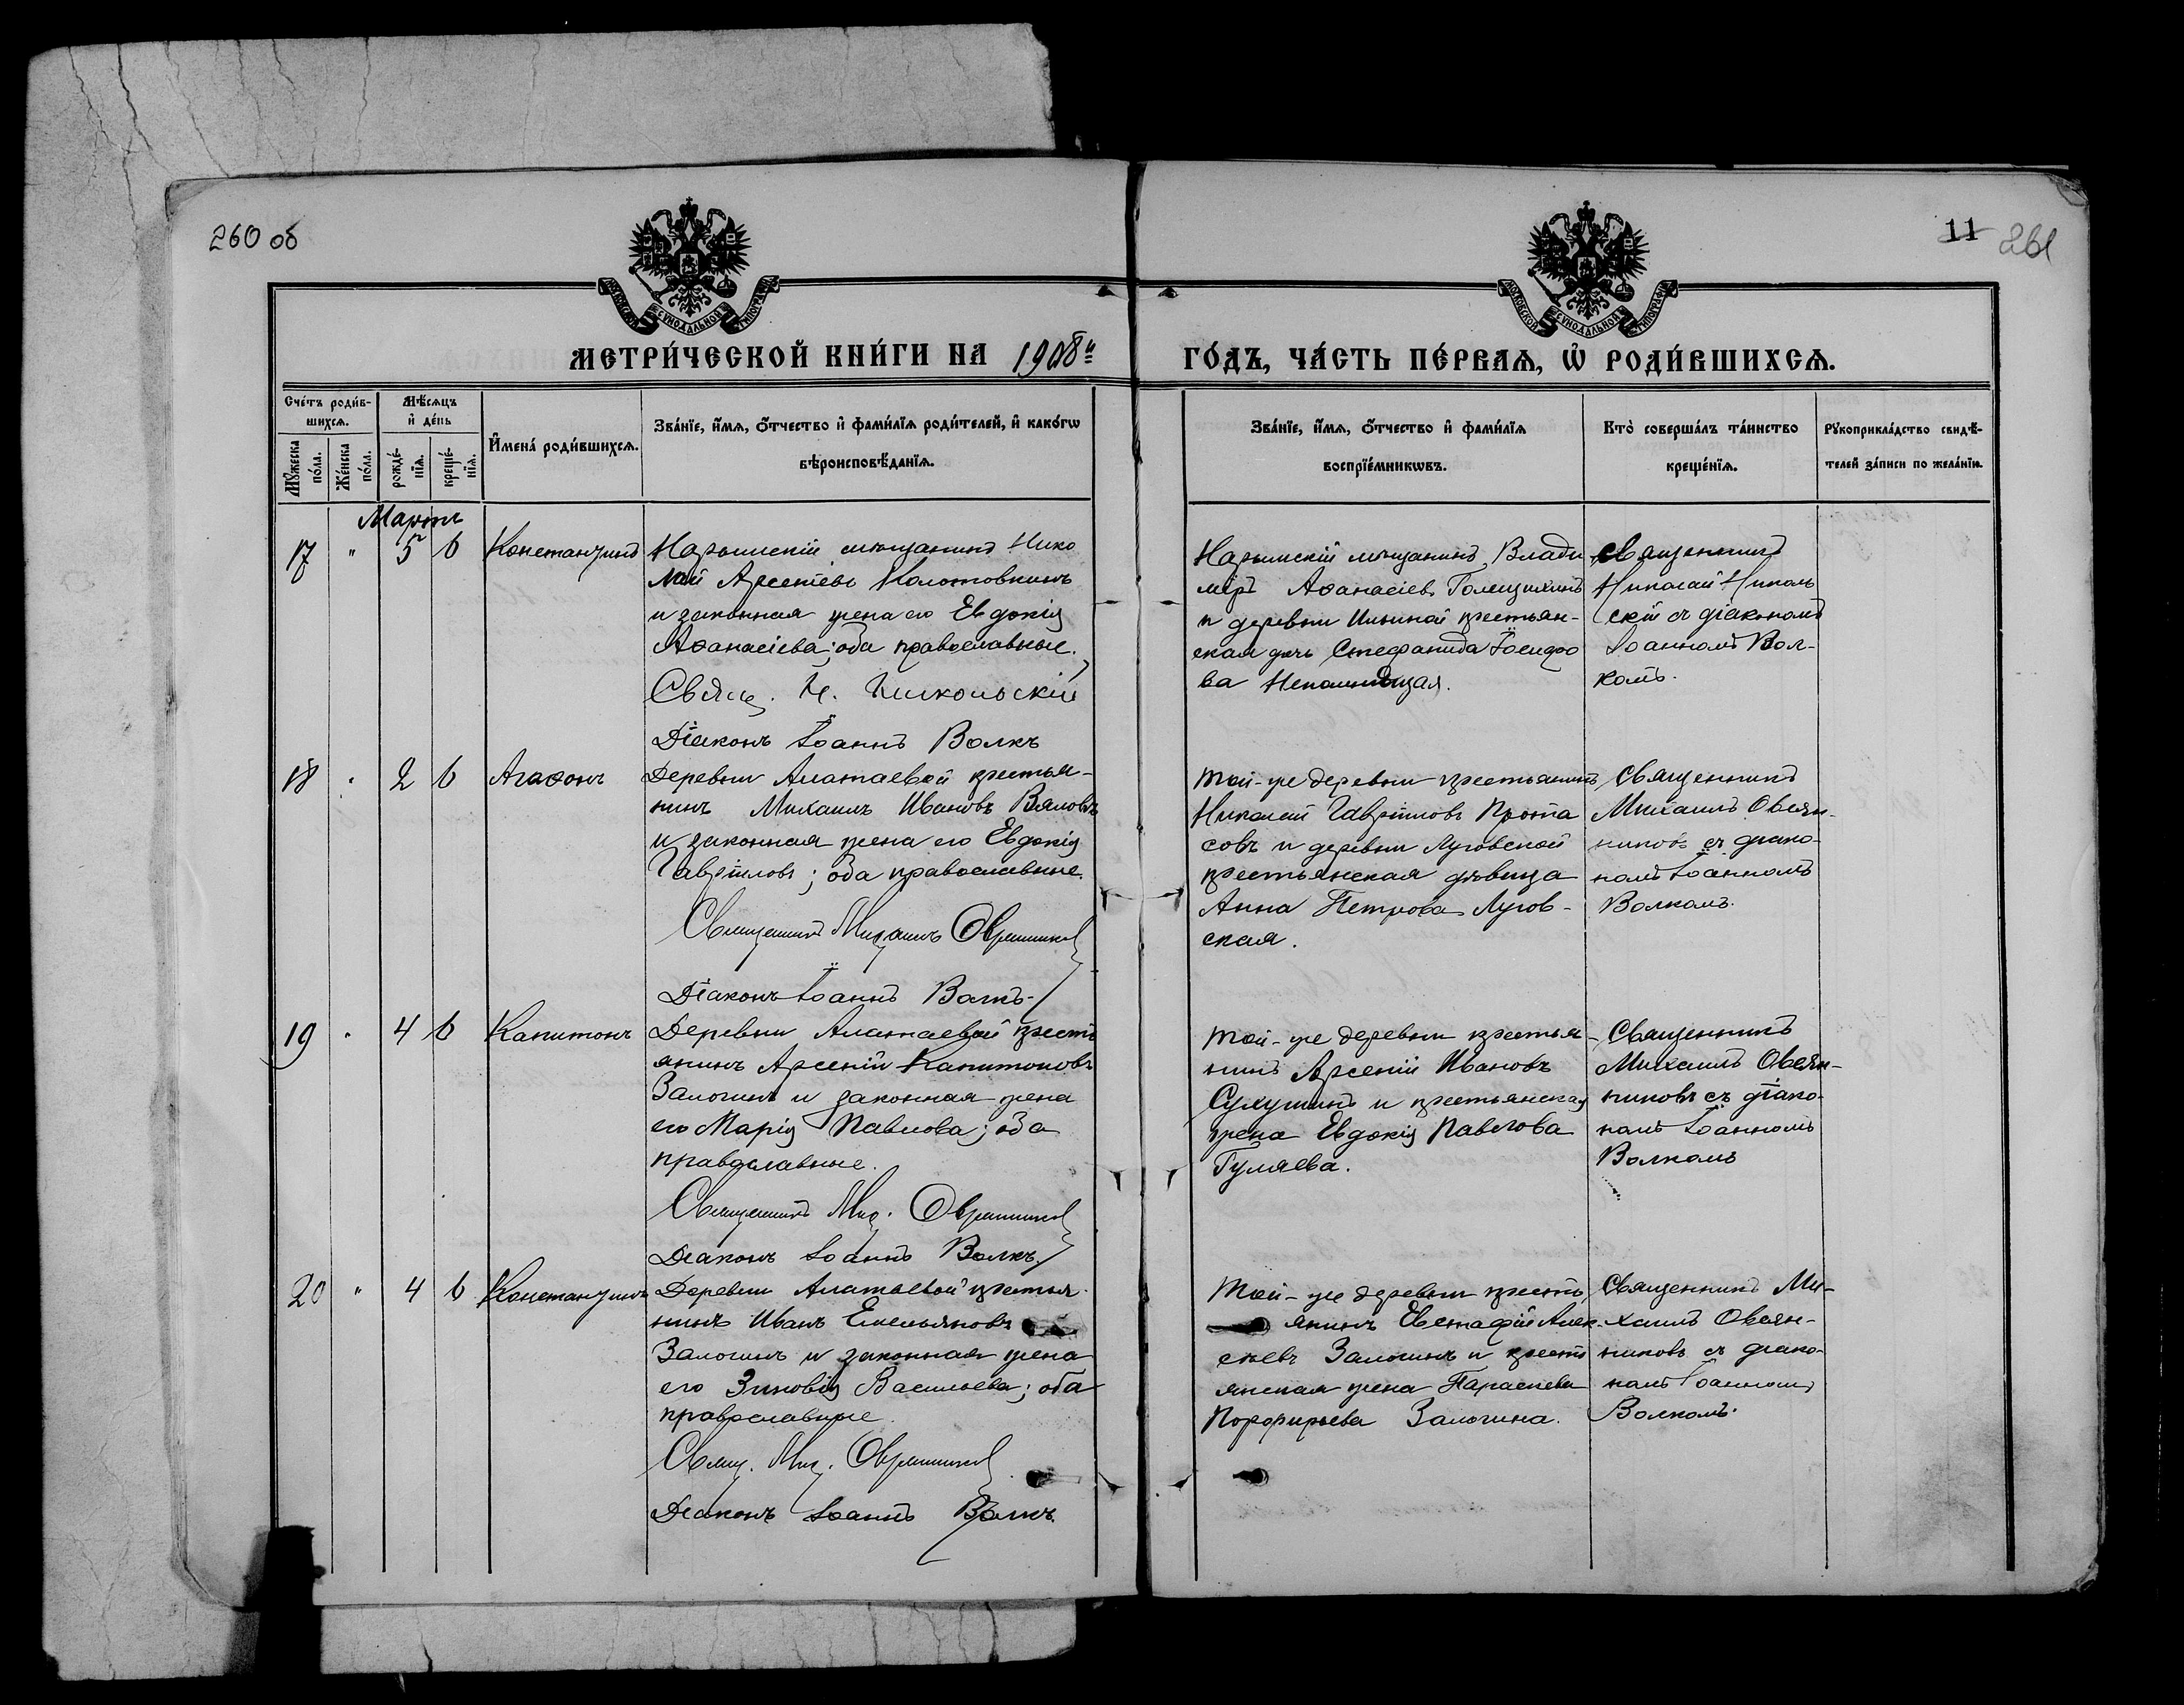 260 об
11 261
МОСКОВСКОЙ СѴНОДАЛЬНОЙ ТИПОГРАФІИ
МОСКОВСКОЙ СѴНОДАЛЬНОЙ ТИПОГРАФІИ
МЕТРИ́ЧЕСКОЙ КНИ́ГИ НА 1908й ГО́ДЪ, ЧА́СТЬ ПЕ́РВАѦ, Ѿ РОДИ́ВШИХСѦ.
Сче́тъ роди́в-
шихсѧ.
Мꙋ́жеска по́ла.
Же́нска по́ла.
Мѣ́сѧцъ
и҆ де́нь
рожде́-
нїѧ.
креще́-
нїѧ.
И҆мена̀ роди́вшихсѧ.
Зва́нїе, и҆́мѧ, ѻ҆́тчество и҆ фами́лїѧ роди́телей, и҆ како́гѡ
вѣроисповѣ́данїѧ.
Зва́нїе, и҆́мѧ, ѻ҆́тчество и҆ фами́лїѧ
воспрїе́мникѡвъ.
Кто̀ соверша́лъ та́инство
креще́нїѧ.
Рꙋкоприкла́дство свидѣ́-
телей за́писи по жела́нїю.
Мартъ
17 " 5 6 Константинъ
Нарымскій мѣщанинъ Нико
лай Арсеніевъ Колотовкинъ
и законная жена его Евдокія
Аѳанасіева; оба православные.
Свящ. Н. Никольскій
Діаконъ Іоаннъ Волкъ
Нарымскій мѣщанинъ Влади
міръ Аѳанасіевъ Голещихинъ
и деревни Ильиной крестьян-
ская дочь Стефанида Іосифо
ва Непомнящая.
Священникъ
Николай Николь
скій съ діакономъ
Іоанномъ Вол-
комъ.
18 " 2 6 Агаѳонъ
Деревни Алатаевой крестья-
нинъ Михаилъ Ивановъ Вяловъ
и законная жена его Евдокія
Гавріилова; оба православные.
Священникъ Михаилъ Овсянниковъ
Діаконъ Іоаннъ Волкъ
Той-же деревни крестьянинъ
Николай Гавріиловъ Прота
совъ и деревни Луговской
крестьянская дѣвица
Анна Петрова Лугов-
ская.
Священникъ
Михаилъ Овсян-
никовъ съ діако-
номъ Іоанномъ
Волкомъ.
19 " 4 6 Капитонъ
Деревни Алатаевой кресть
янинъ Арсеній Капитоновъ
Залогинъ и законная жена
его Марія Павлова; оба
православные.
Священникъ Мих. Овсянниковъ
Діаконъ Іоаннъ Волкъ.
Той-же деревни крестья-
нинъ Арсеній Ивановъ
Сухушинъ и крестьянская
жена Евдокія Павлова
Гуляева.
Священникъ
Михаилъ Овсян-
никовъ съ діако-
номъ Іоанномъ
Волкомъ
20 " 4 6 Константинъ
Деревни Алатаевой крестья
нинъ Иванъ Емельяновъ
Залогинъ и законная жена
его Зиновія Васильева; оба
православные.
Свящ. Мих. Овсянниковъ
Діаконъ Іоаннъ Волкъ.
Той-же деревни кресть
янинъ Евстафій Алек-
сѣевъ Залогинъ и кресть
янская жена Параскева
Порфирьева Залогина.
Священникъ Ми-
хаилъ Овсян-
никовъ съ діако-
номъ Іоанномъ
Волкомъ.